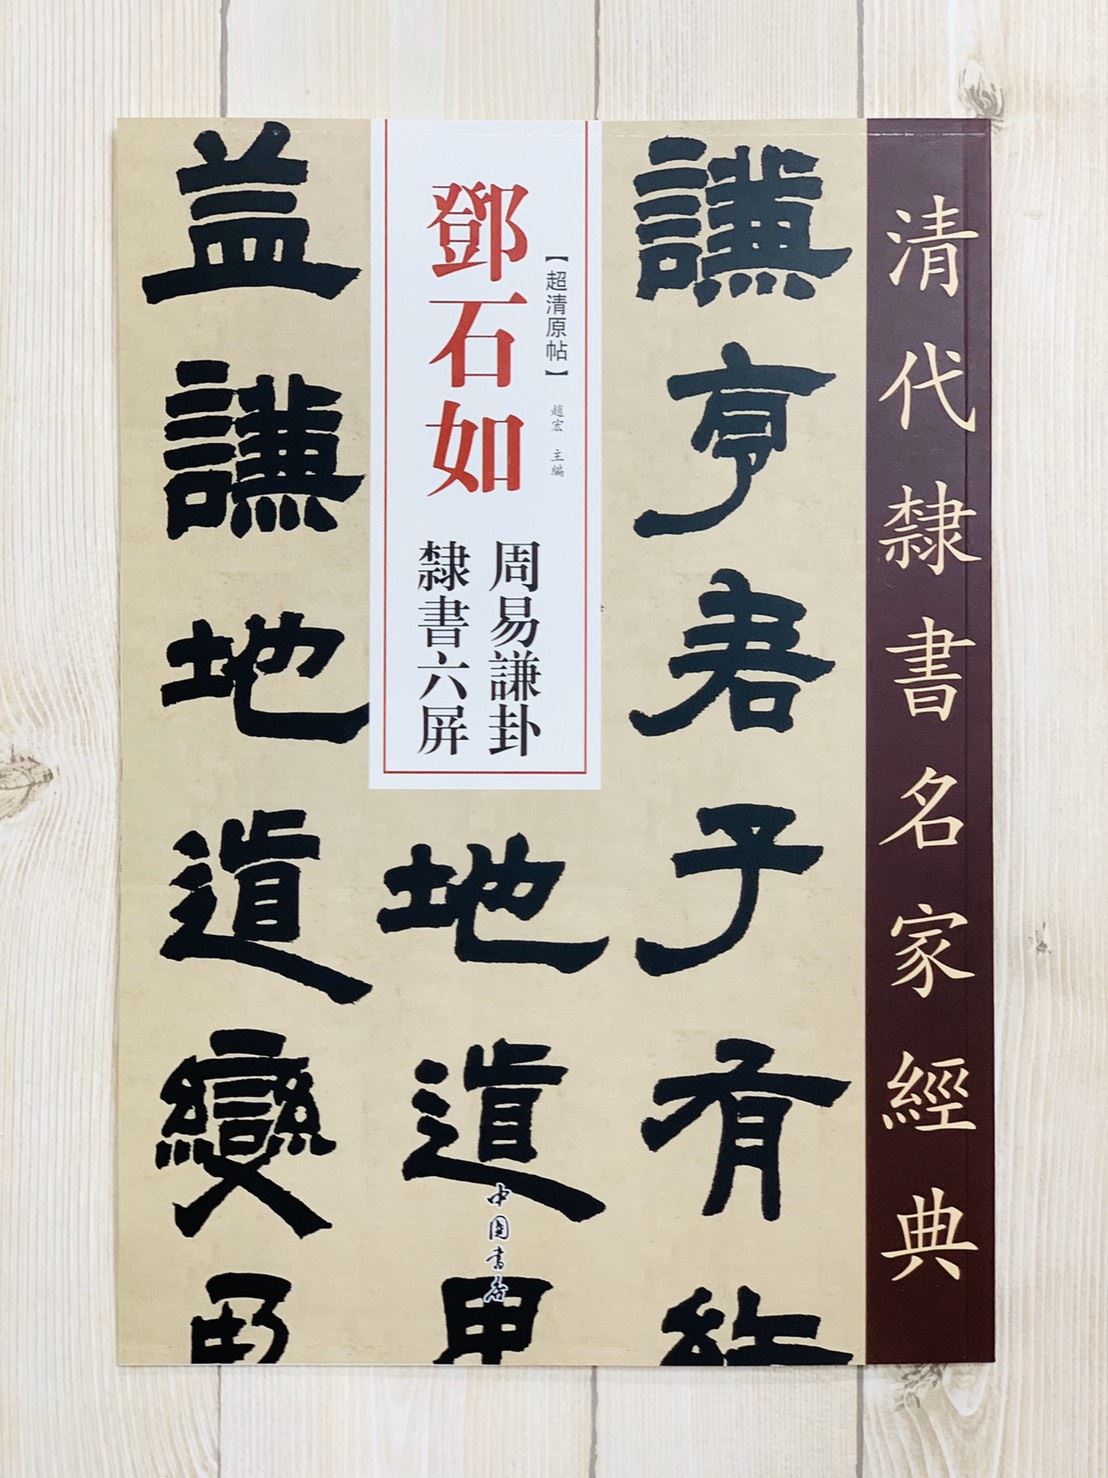 清代隸書名家經典
謙亨君子有
【超清原帖】 趙宏 主編
鄧石如
周易謙卦
隸書六屏
地道
中國書店
益謙地道變